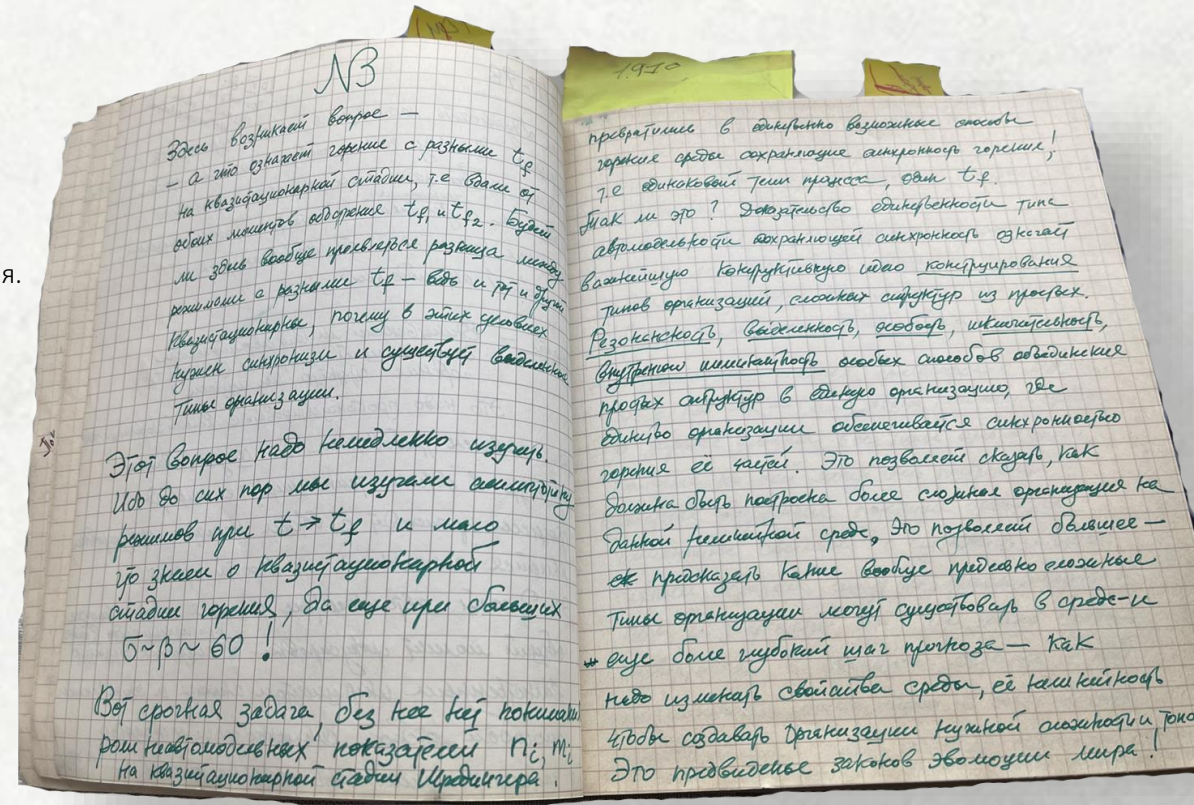 я.
1910
N3
Здесь возникает вопрос —
– а что означает горение с разными tf
на квазистационарной стадии, т.е вдали от
обоих моментов обострения tf1 и tf2. Будет
ли здесь вообще проявляться разница между
режимами с разными tf – ведь и тот и другой
квазистационарны, почему в этих условиях
нужен синхронизм и существует выделенные
типы организации.
Этот вопрос надо немедленно изучить.
Ибо до сих пор мы изучали асимптотику
режимов при t → tf и мало
что знаем о квазистационарной
стадии горения, да еще при больших
σ ~ β ~ 60 !
Вот срочная задача, без нее нет понимания
роли неавтомодельных показателей ni, mi
на квазистационарной стадии Шредингера.
превратились в единственно возможные способы
горения среды сохраняющие синхронность горения,!
т.е одинаковый темп процесса, один tf.
Так ли это? Доказательство единственности типа
автомодельности сохраняющей синхронность означает
важнейшую конструктивную идею конструирования
типов организаций, сложных структур из простых.
Резонансность, выделенность, особость, исключительность,
внутреннюю особых способов объединения
простых структур в единую организацию, где
единство организации обеспечивается синхронностью
горения её частей. Это позволяет сказать, как
должна быть построена более сложная организация на
данной нелинейной среде, Это позволяет большее —
предсказать какие вообще предельно сложные
типы организации могут существовать в среде – и
еще более глубокий шаг прогноза — как
надо изменять свойства среды, её нелинейность
чтобы создавать организации нужной сложности и
Это предвиденье законов эволюции мира!